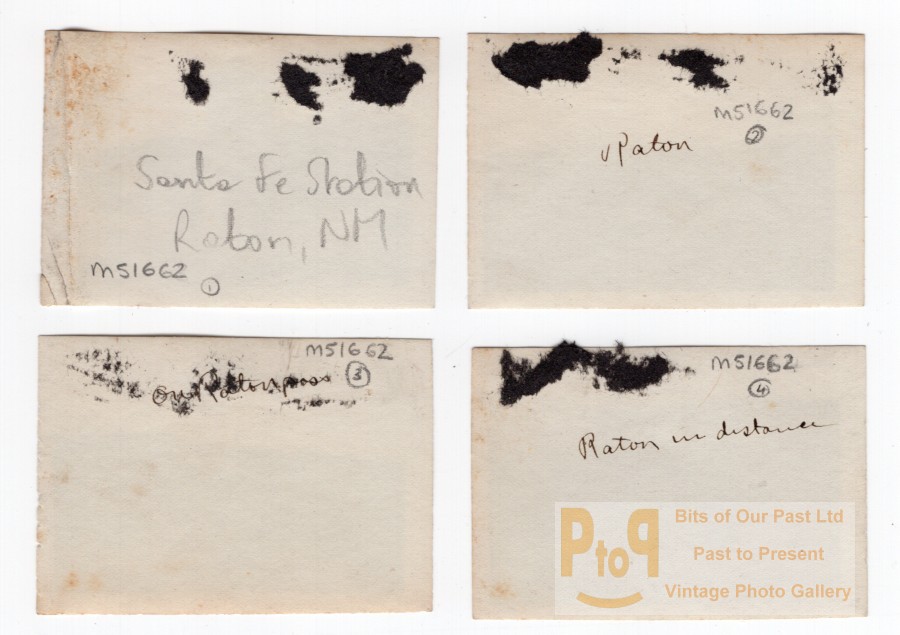 Santa Fe Station
Raton, NM
M51662
1
M51662
2
Raton
M51662
3
On Raton pass
M51662
4
Raton in distance
PtoP
Bits of Our Past Ltd
Past to Present
Vintage Photo Gallery